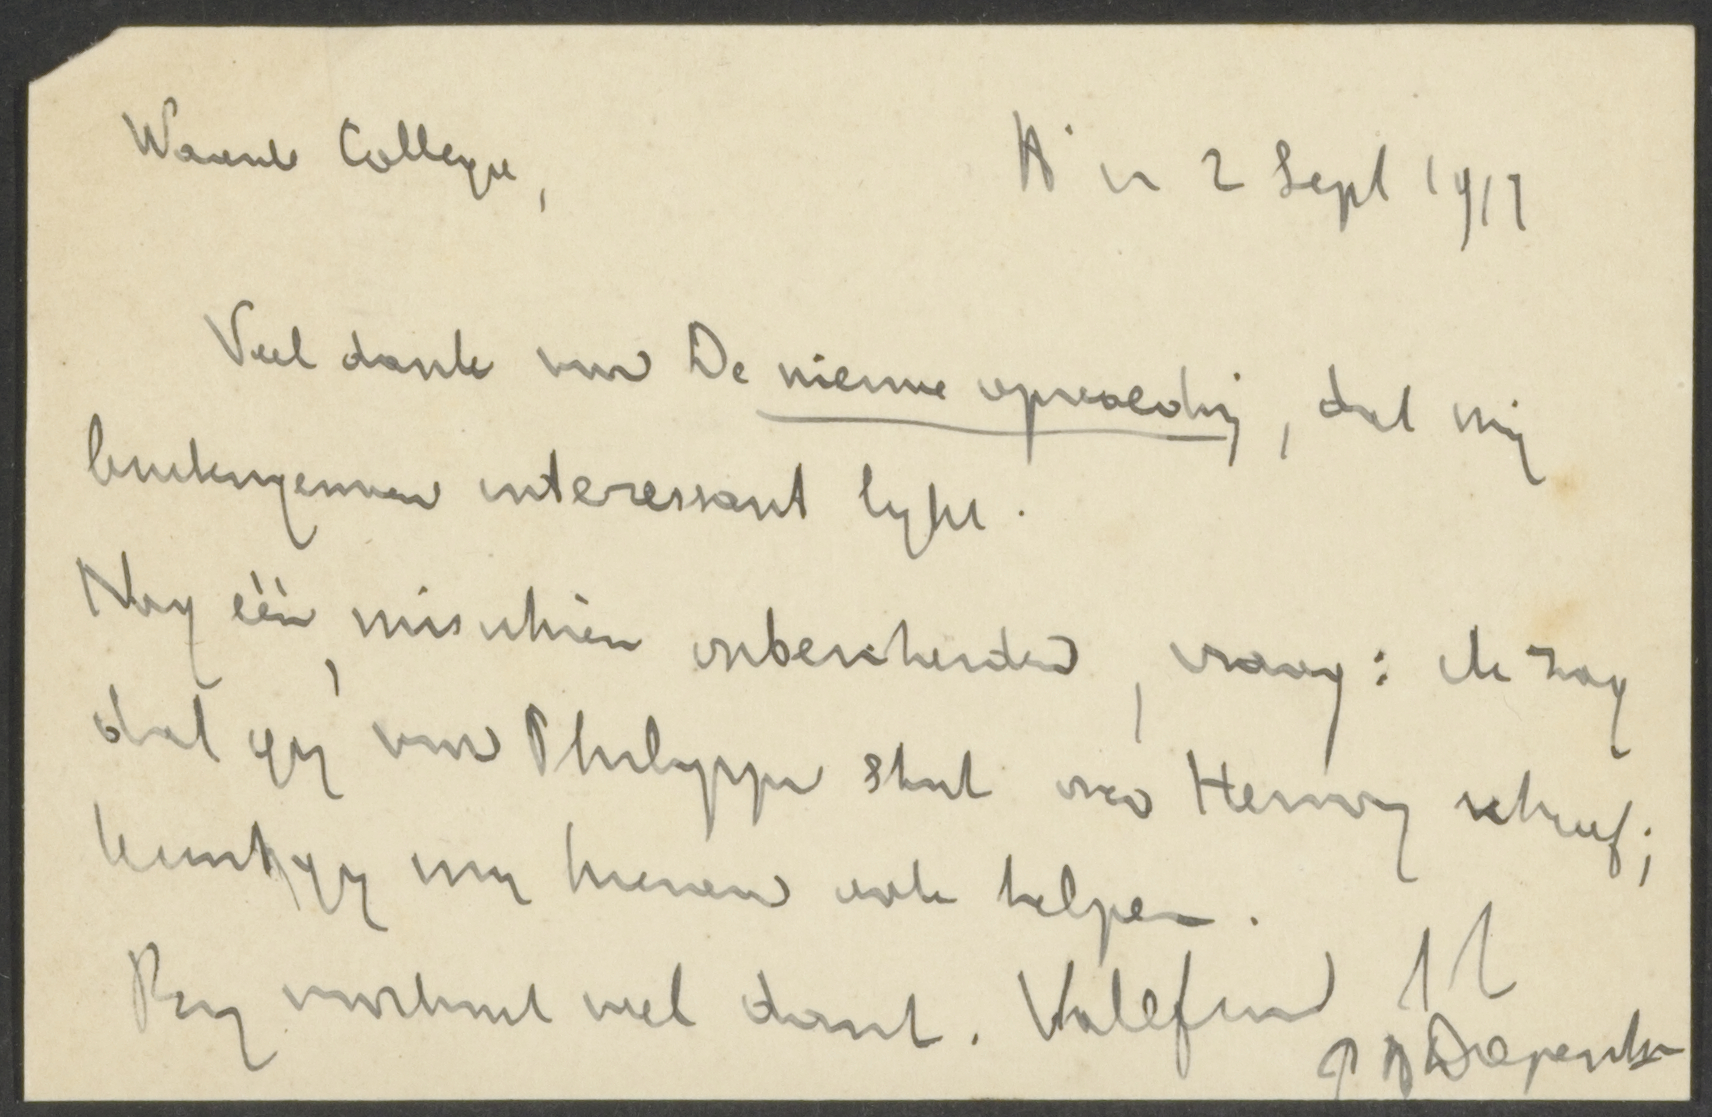 Waarde Collega,
A'm 2 Sept 1917
Veel dank voor De nieuwe opvoeding, dat mij
buitengewoon interessant lijkt.
Nog één, misschien onbescheiden, vraag: ik zag
dat gij voor Philippe stuk over Henry schreef;
kunt gij mij hieraan ook helpen.
Bij voorbaat veel dank.